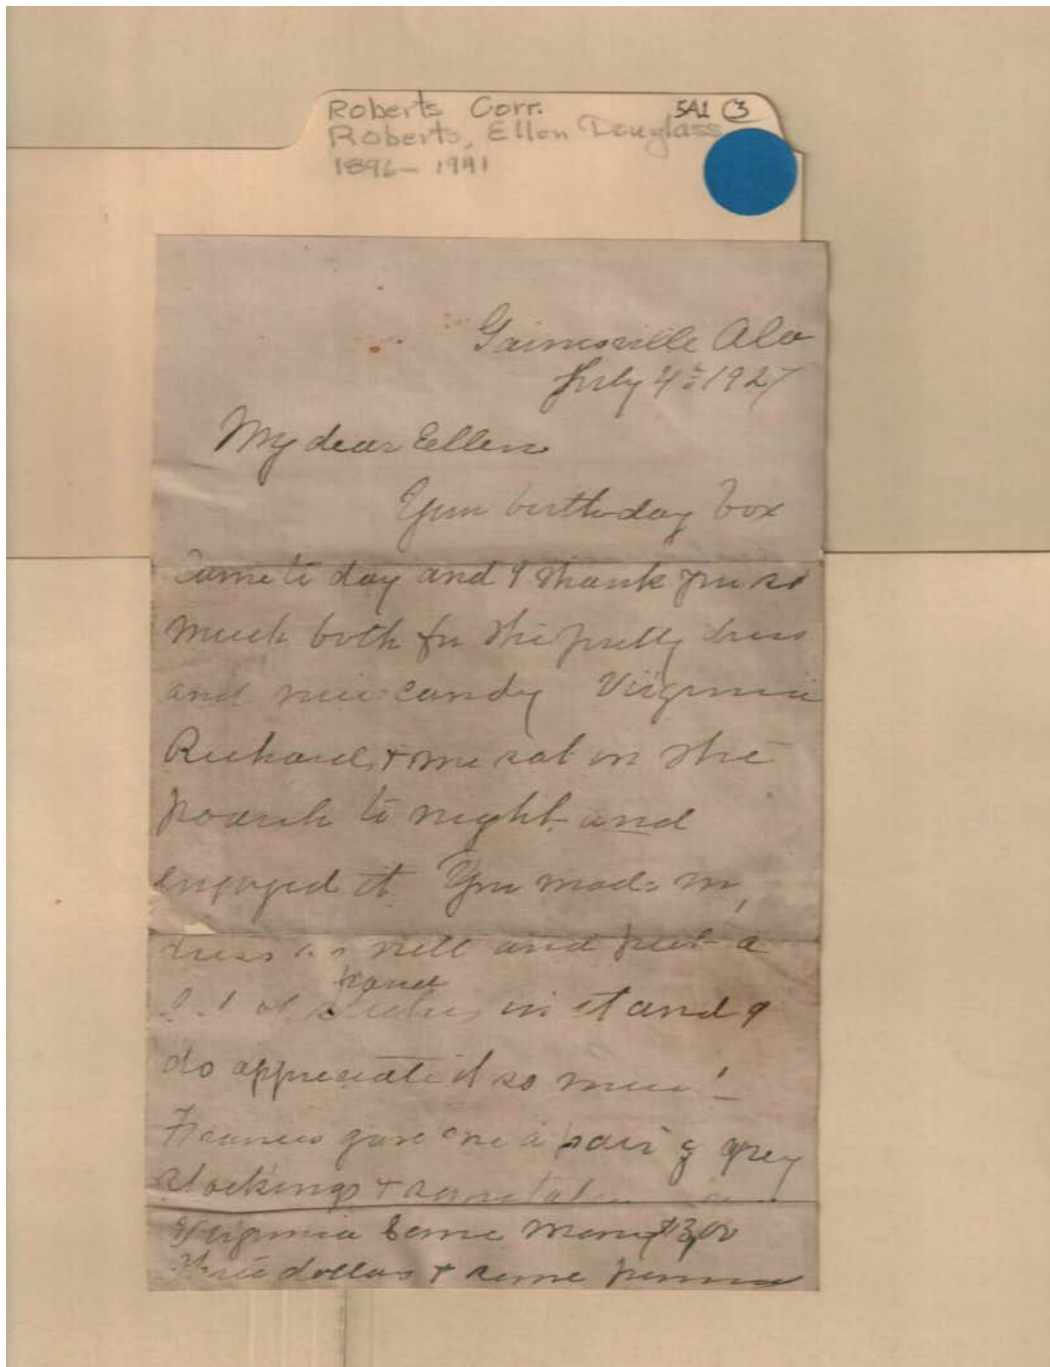 Roberts Corr. 5A1 3
Roberts, Ellen Douglass
1896-1941
Gainesville Ala
July 4th 1927
My dear Ellen
Your birthday box
came to day and I thank you so
much both for the pretty dress
and nice candy Virginia
Richard & me sat on the
poarch to night and
enjoyed it You made my
dress so well and put a
hand
lot of stiches in it and I
do appreciate it so much!
Frances gave me a pair of grey
stockings &
Virginia some money $3,00
three dollars & some